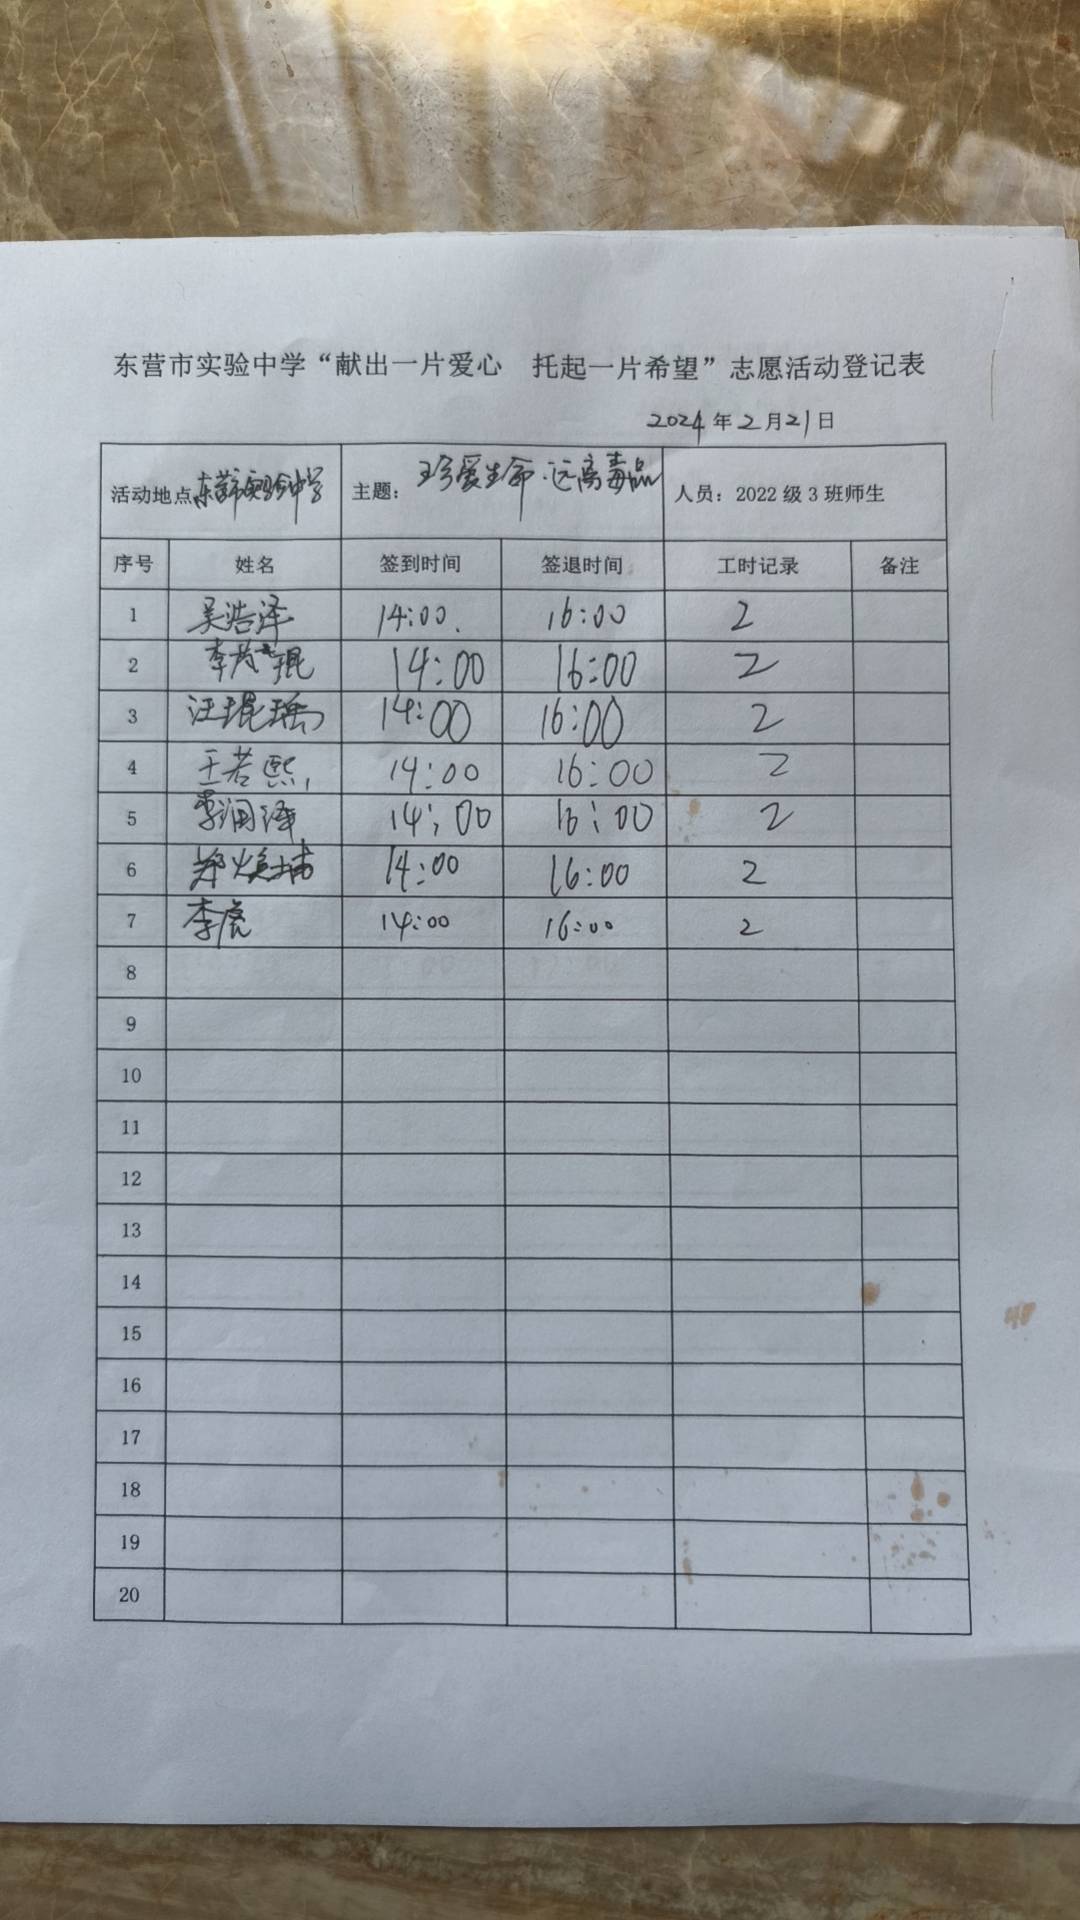 东营市实验中学“献出一片爱心 托起一片希望”志愿活动登记表
2024年2月21日
活动地点东营市实验中学 主题：珍爱生命·远离毒品 人员：2022级3班师生
序号 姓名 签到时间 签退时间 工时记录 备注
1 吴浩泽 14:00. 16:00 2
2 李 琨 14:00 16:00 2
3 汪琨瑀 14:00 16:00 2
4 王若熙 14:00 16:00 2
5 李润泽 14:00 16:00 2
6 郑焕埔 14:00 16:00 2
7 李虎 14:00 16:00 2
8
9
10
11
12
13
14
15
16
17
18
19
20